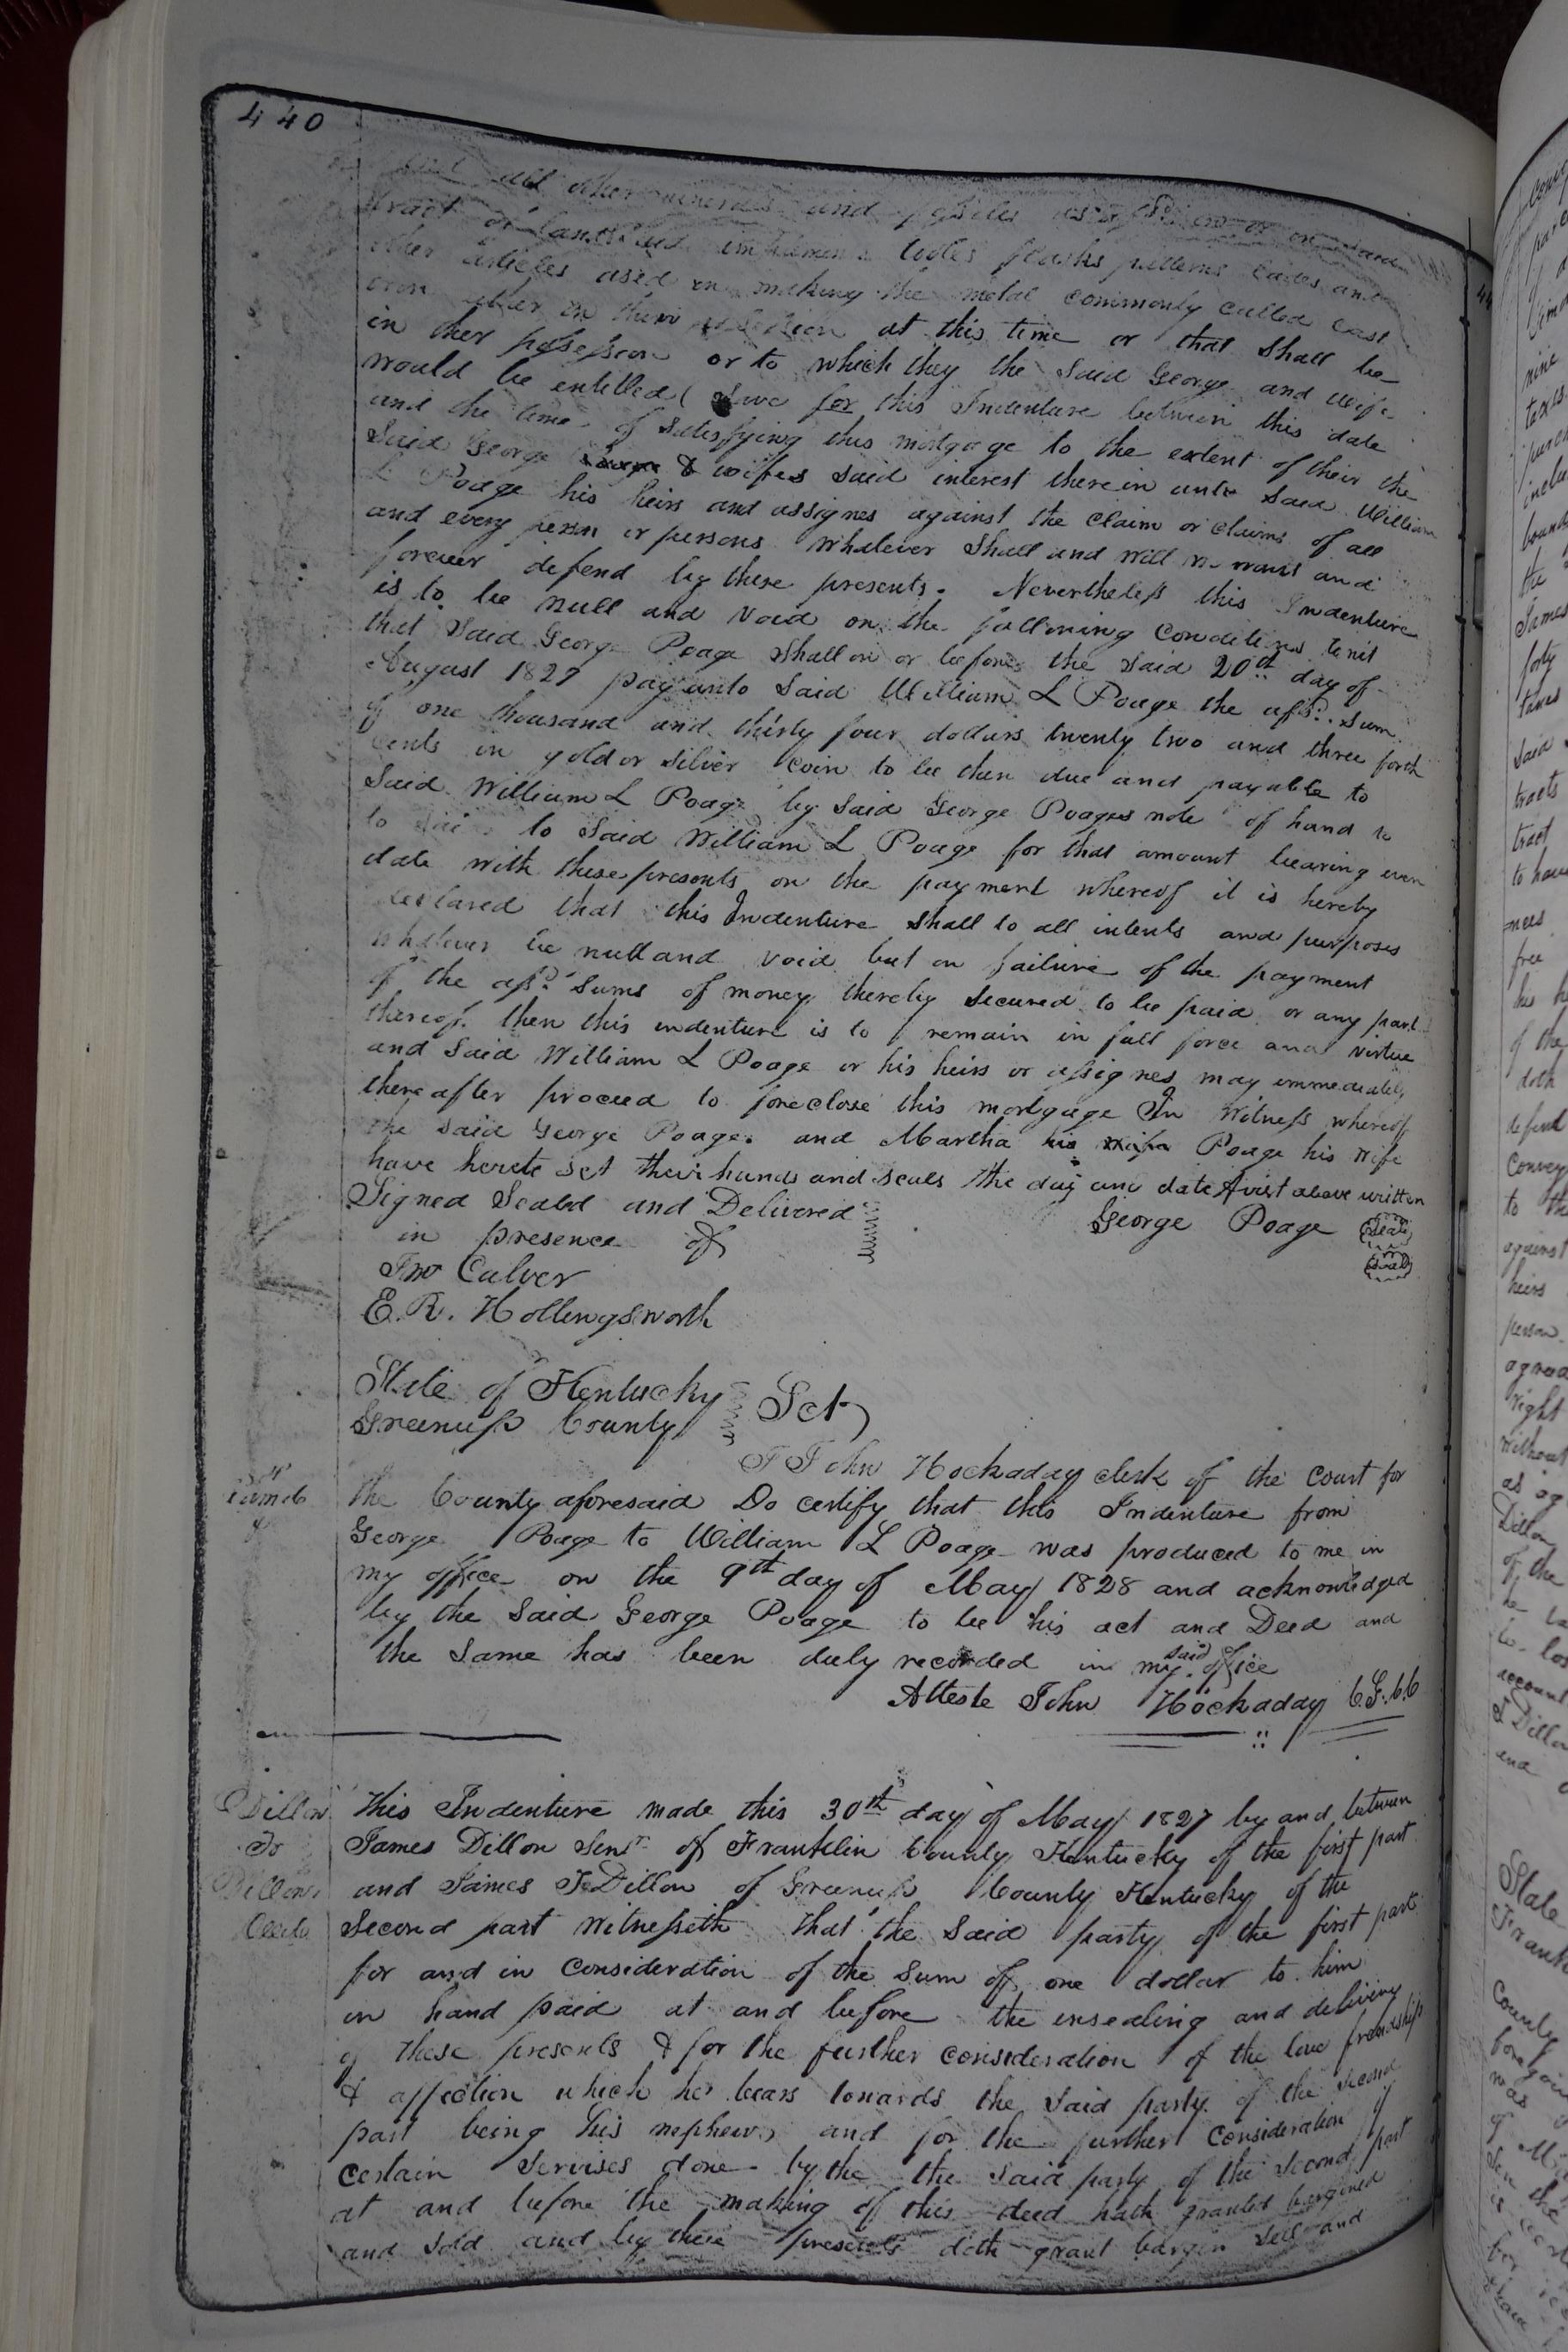 440
and all other minerals and fossiles as afsd. in or on said
tract of land Said implements tooles flasks patterns ladles and
other articles used in making the metal commonly called cast
iron either in their possession at this time or that shall be
in their possession or to which they the said George and wife
would be entitled (save for this Indenture between this date
and the time of satisfying this mortgage to the extent of their the
Said George & wifes said interest therein unto said William
L Poage his heirs and assignes against the claim or claims of all
and every person or persons whatever shall and will warrant and
forever defend by these presents. Nevertheless this Indenture
is to be null and void on the following conditions towit
that said George Poage shall on or before the said 20th day of
August 1827 pay unto said William L Poage the afsd. sum
of one thousand and thirty four dollars twenty two and three forth
cents in gold or silver coin to be then due and payable to
Said William L Poage by said George Poages note of hand to
to to said William L Poage for that amount bearing even
date with these presents on the payment whereof it is hereby
declared that this Indenture shall to all intents and purposes
whatever be null and void but on failure of the payment
of the afsd. sums of money thereby secured to be paid or any part
thereof. then this indenture is to remain in full force and virtue
and said William L Poage or his heirs or assignes may immediately
thereafter proceed to foreclose this mortgage In Witness whereof
the said George Poage and Martha his wife Poage his wife
have hereto set their hands and seals the day and date first above written
Signed Sealed and Delivered
in presence of
George Poage Seal
Seal
Jno Culver
E. R. Hollingsworth
State of Kentucky
Greenup County Sct
I John Hockaday clerk of the court for
the County aforesaid Do certify that this Indenture from
George Poage to William L Poage was produced to me in
my office on the 9th day of May 1828 and acknowledged
by the said George Poage to be his act and Deed and
the same has been duly recorded in my said office
Atteste John Hockaday C.G.C.C
Dillon
To
Dillon
Deed
This Indenture made this 30th day of May 1827 by and between
James Dillon Senr. of Franklin County Kentucky of the first part
and James T Dillon of Greenup County Kentucky of the
Second part Witnesseth that the said party of the first part
for and in consideration of the sum of one dollar to him
in hand paid at and before the ensealing and delivery
of these presents & for the further consideration of the love freindship
& affection which he bears towards the said party of the second
part being his nephew, and for the further consideration of
certain servises done by the the said party of the second part
at and before the making of this deed hath granted bargined
and sold and by these presents doth grant bargin sell and